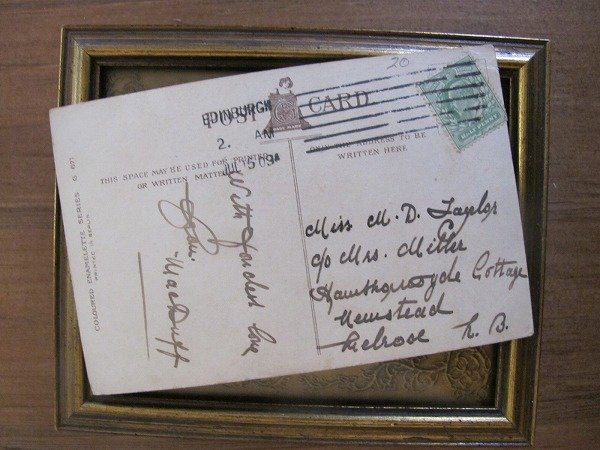 20
EDINBURGH
2. AM
JUL 15 09
POST CARD
THIS SPACE MAY BE USED FOR PRINTED
OR WRITTEN MATTER
ONLY THE ADDRESS TO BE
WRITTEN HERE
COLOURED ENAMELETTE SERIES G 601
PRINTED IN BERLIN
With fondest love
from
"MacDuff
Miss M. D. Taylor
c/o Mrs. Miller
Cottage
Newstead
Melrose N. B.